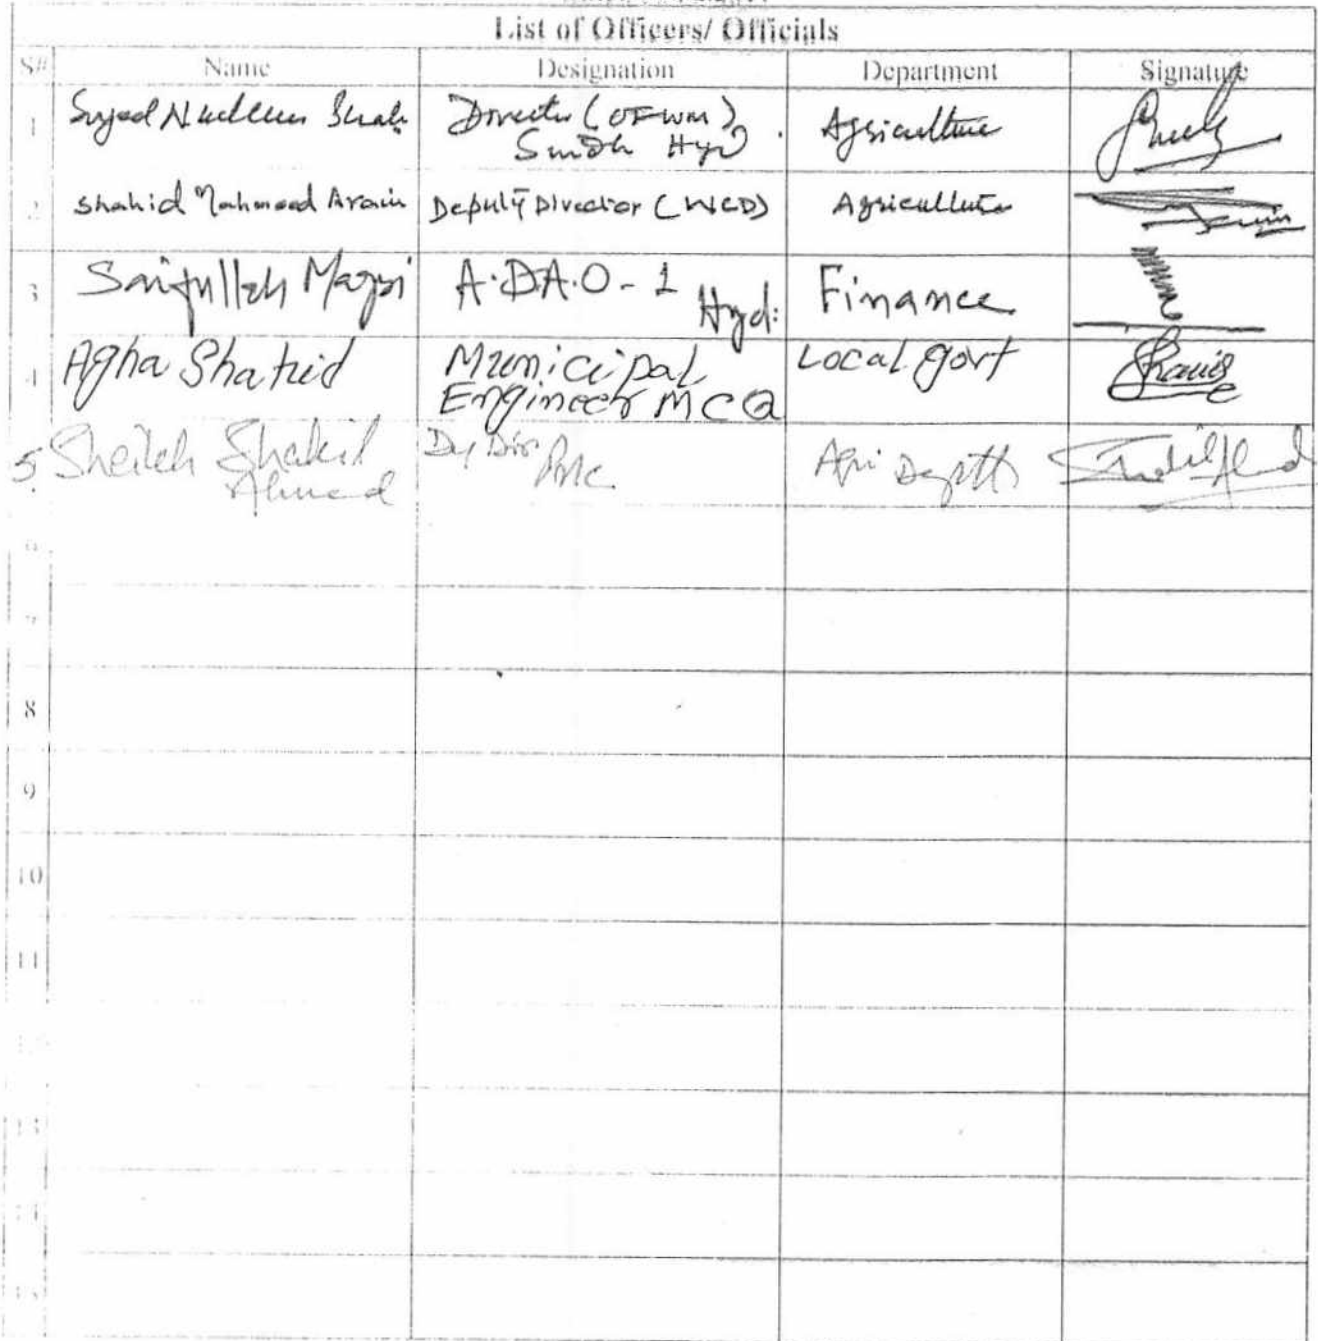 List of Officers/ Officials
S# Name Designation Department Signature
1 Syed Shah Director (OFWM) Agriculture
Sindh Hyd
2 Shahid Mahmood Arain Deputy Director (WCD) Agriculture
3 Saifullah Magsi A.D.A.O-1 Hyd: Finance
4 Agha Shahid Municipal Local govt
Engineer MCQ
5. Sheikh Shakil Dy Dir Agri Deptt
Ahmed
6
7
8
9
10
11
12
13
14
15